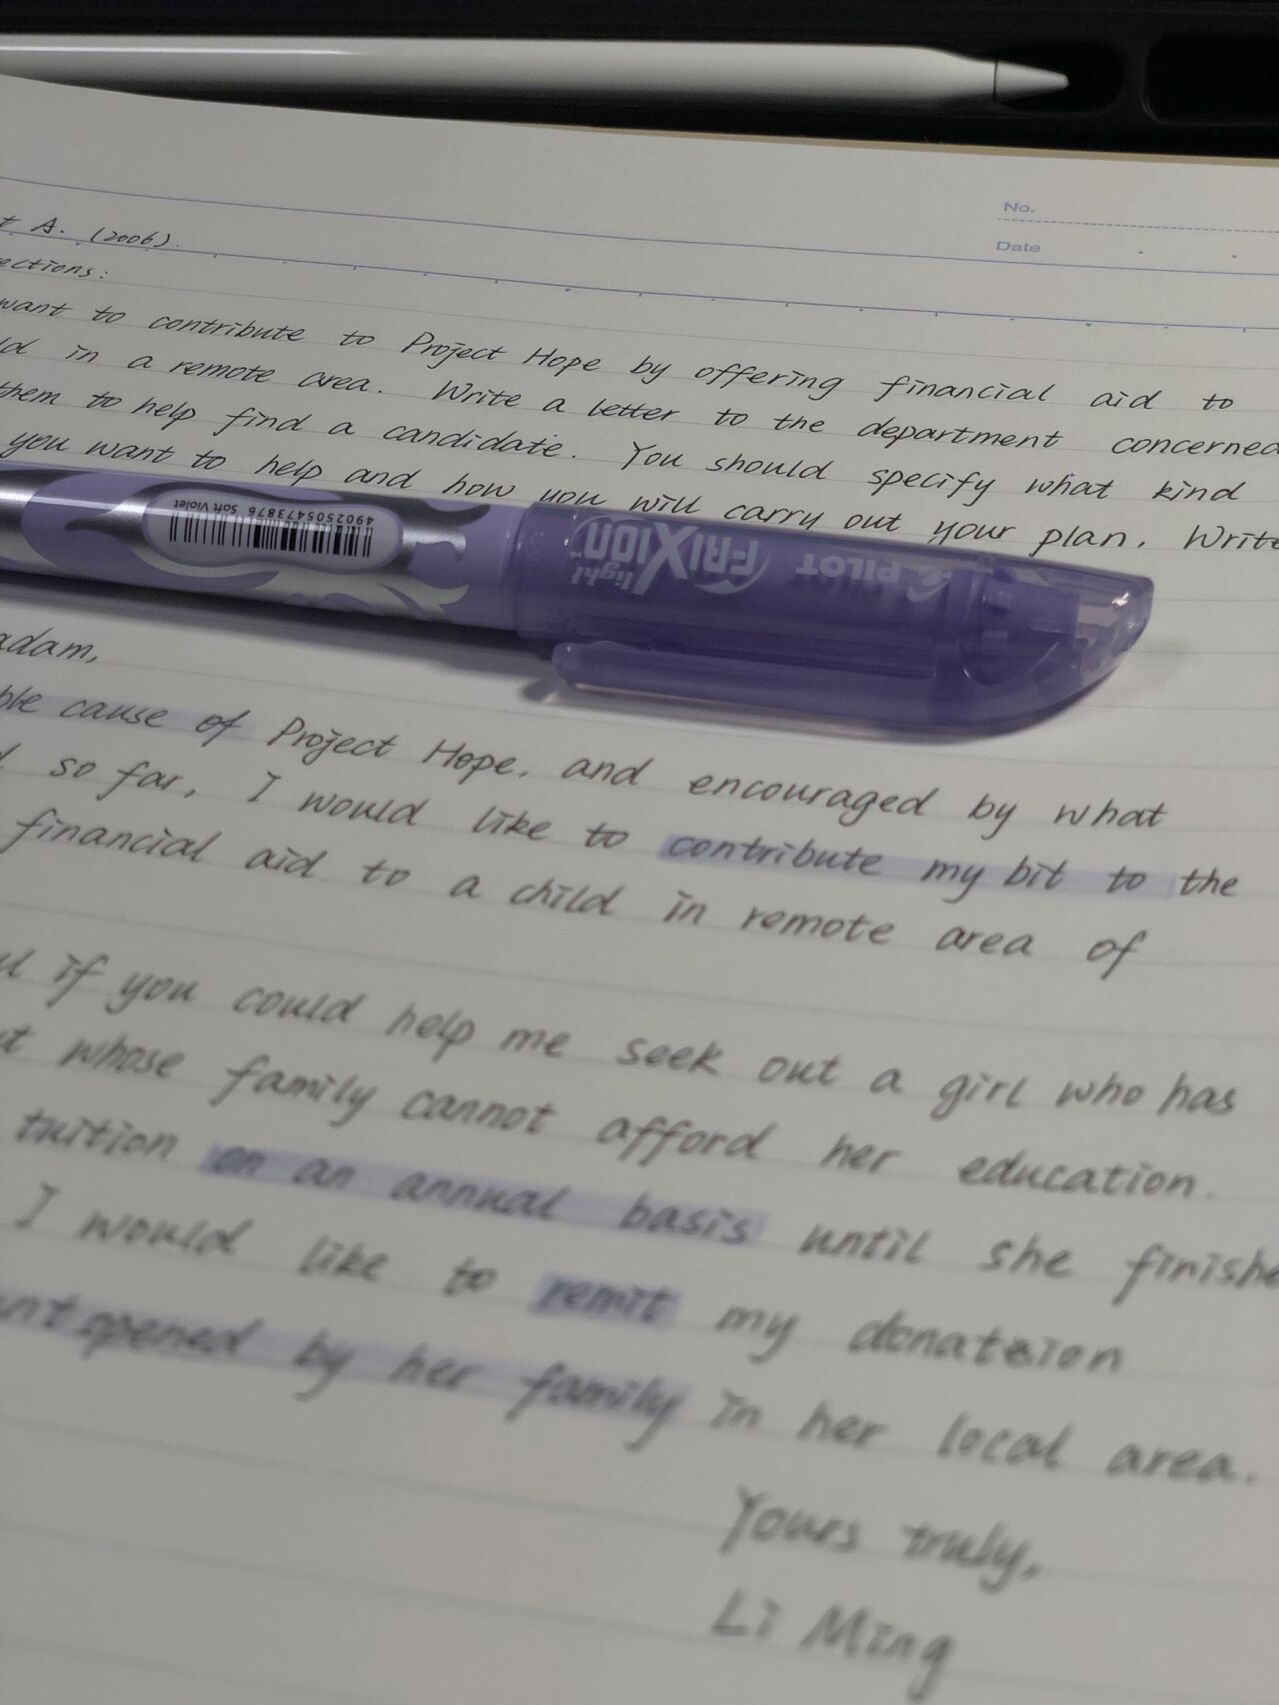 No.
Date
A. (2006).
ections:
want to contribute to Project Hope by offering financial aid to
ld in a remote area. Write a letter to the department concerned
them to help find a candidate. You should specify what kind
you want to help and how you will carry out your plan. Write
4902505473876 Soft Violet
PILOT FRIXION light
adam,
ble cause of Project Hope, and encouraged by what
so far, I would like to contribute my bit to the
financial aid to a child in remote area of
if you could help me seek out a girl who has
whose family cannot afford her education.
tuition on an annual basis until she finishe
I would like to remit my
opened by her family in her local area.
Yours truly,
Li Ming